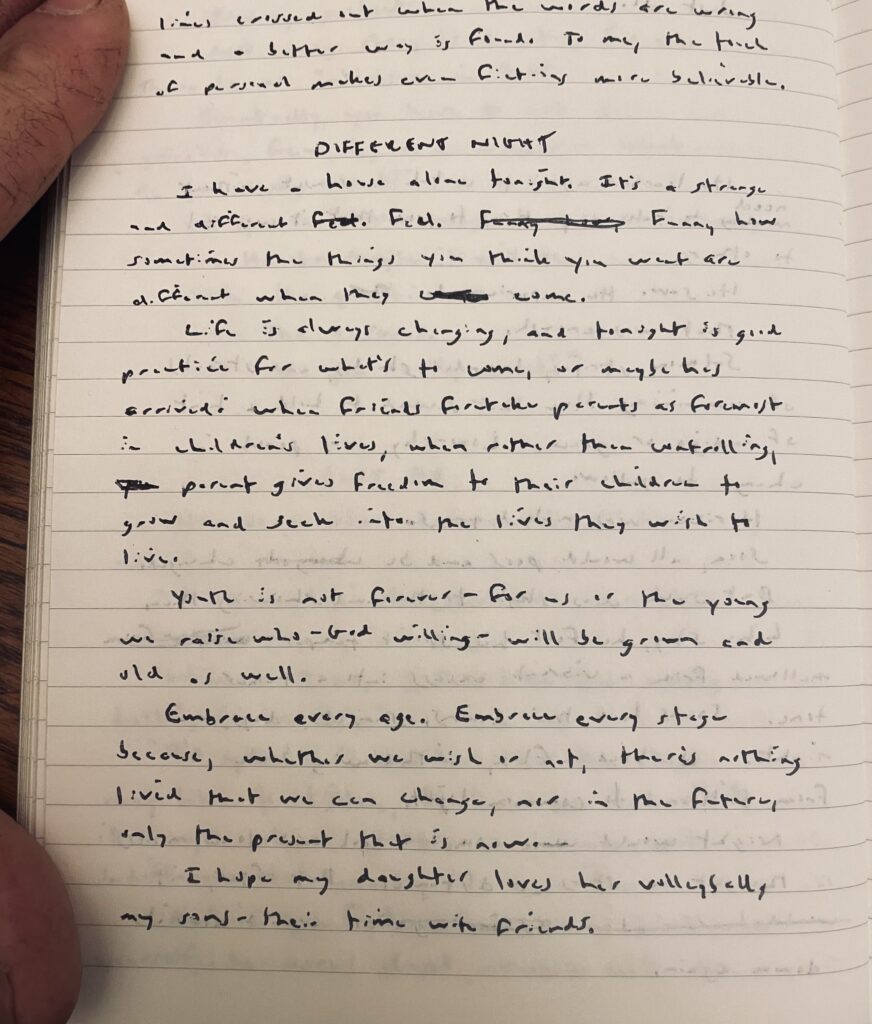 lines crossed out when the words are wrong
and a better way is found. To me, the touch
of personal makes even fictions more believable.
DIFFERENT NIGHT
I have a house alone tonight. It's a strange
and different feet. Feel. Funny how, Funny how
sometimes the things you think you want are
different when they come.
Life is always changing, and tonight is good
practice for what's to come, or maybe has
arrived: when friends foretake parents as foremost
in children's lives, when rather than controlling,
parent gives freedom to their children to
grow and seek into the lives they wish to
live.
Youth is not forever - for us or the young
we raise who - God willing - will be grown and
old as well.
Embrace every age. Embrace every stage
because, whether we wish or not, there's nothing
lived that we can change, nor in the future,
only the present that is now.
I hope my daughter loves her volleyball,
my sons - their time with friends.